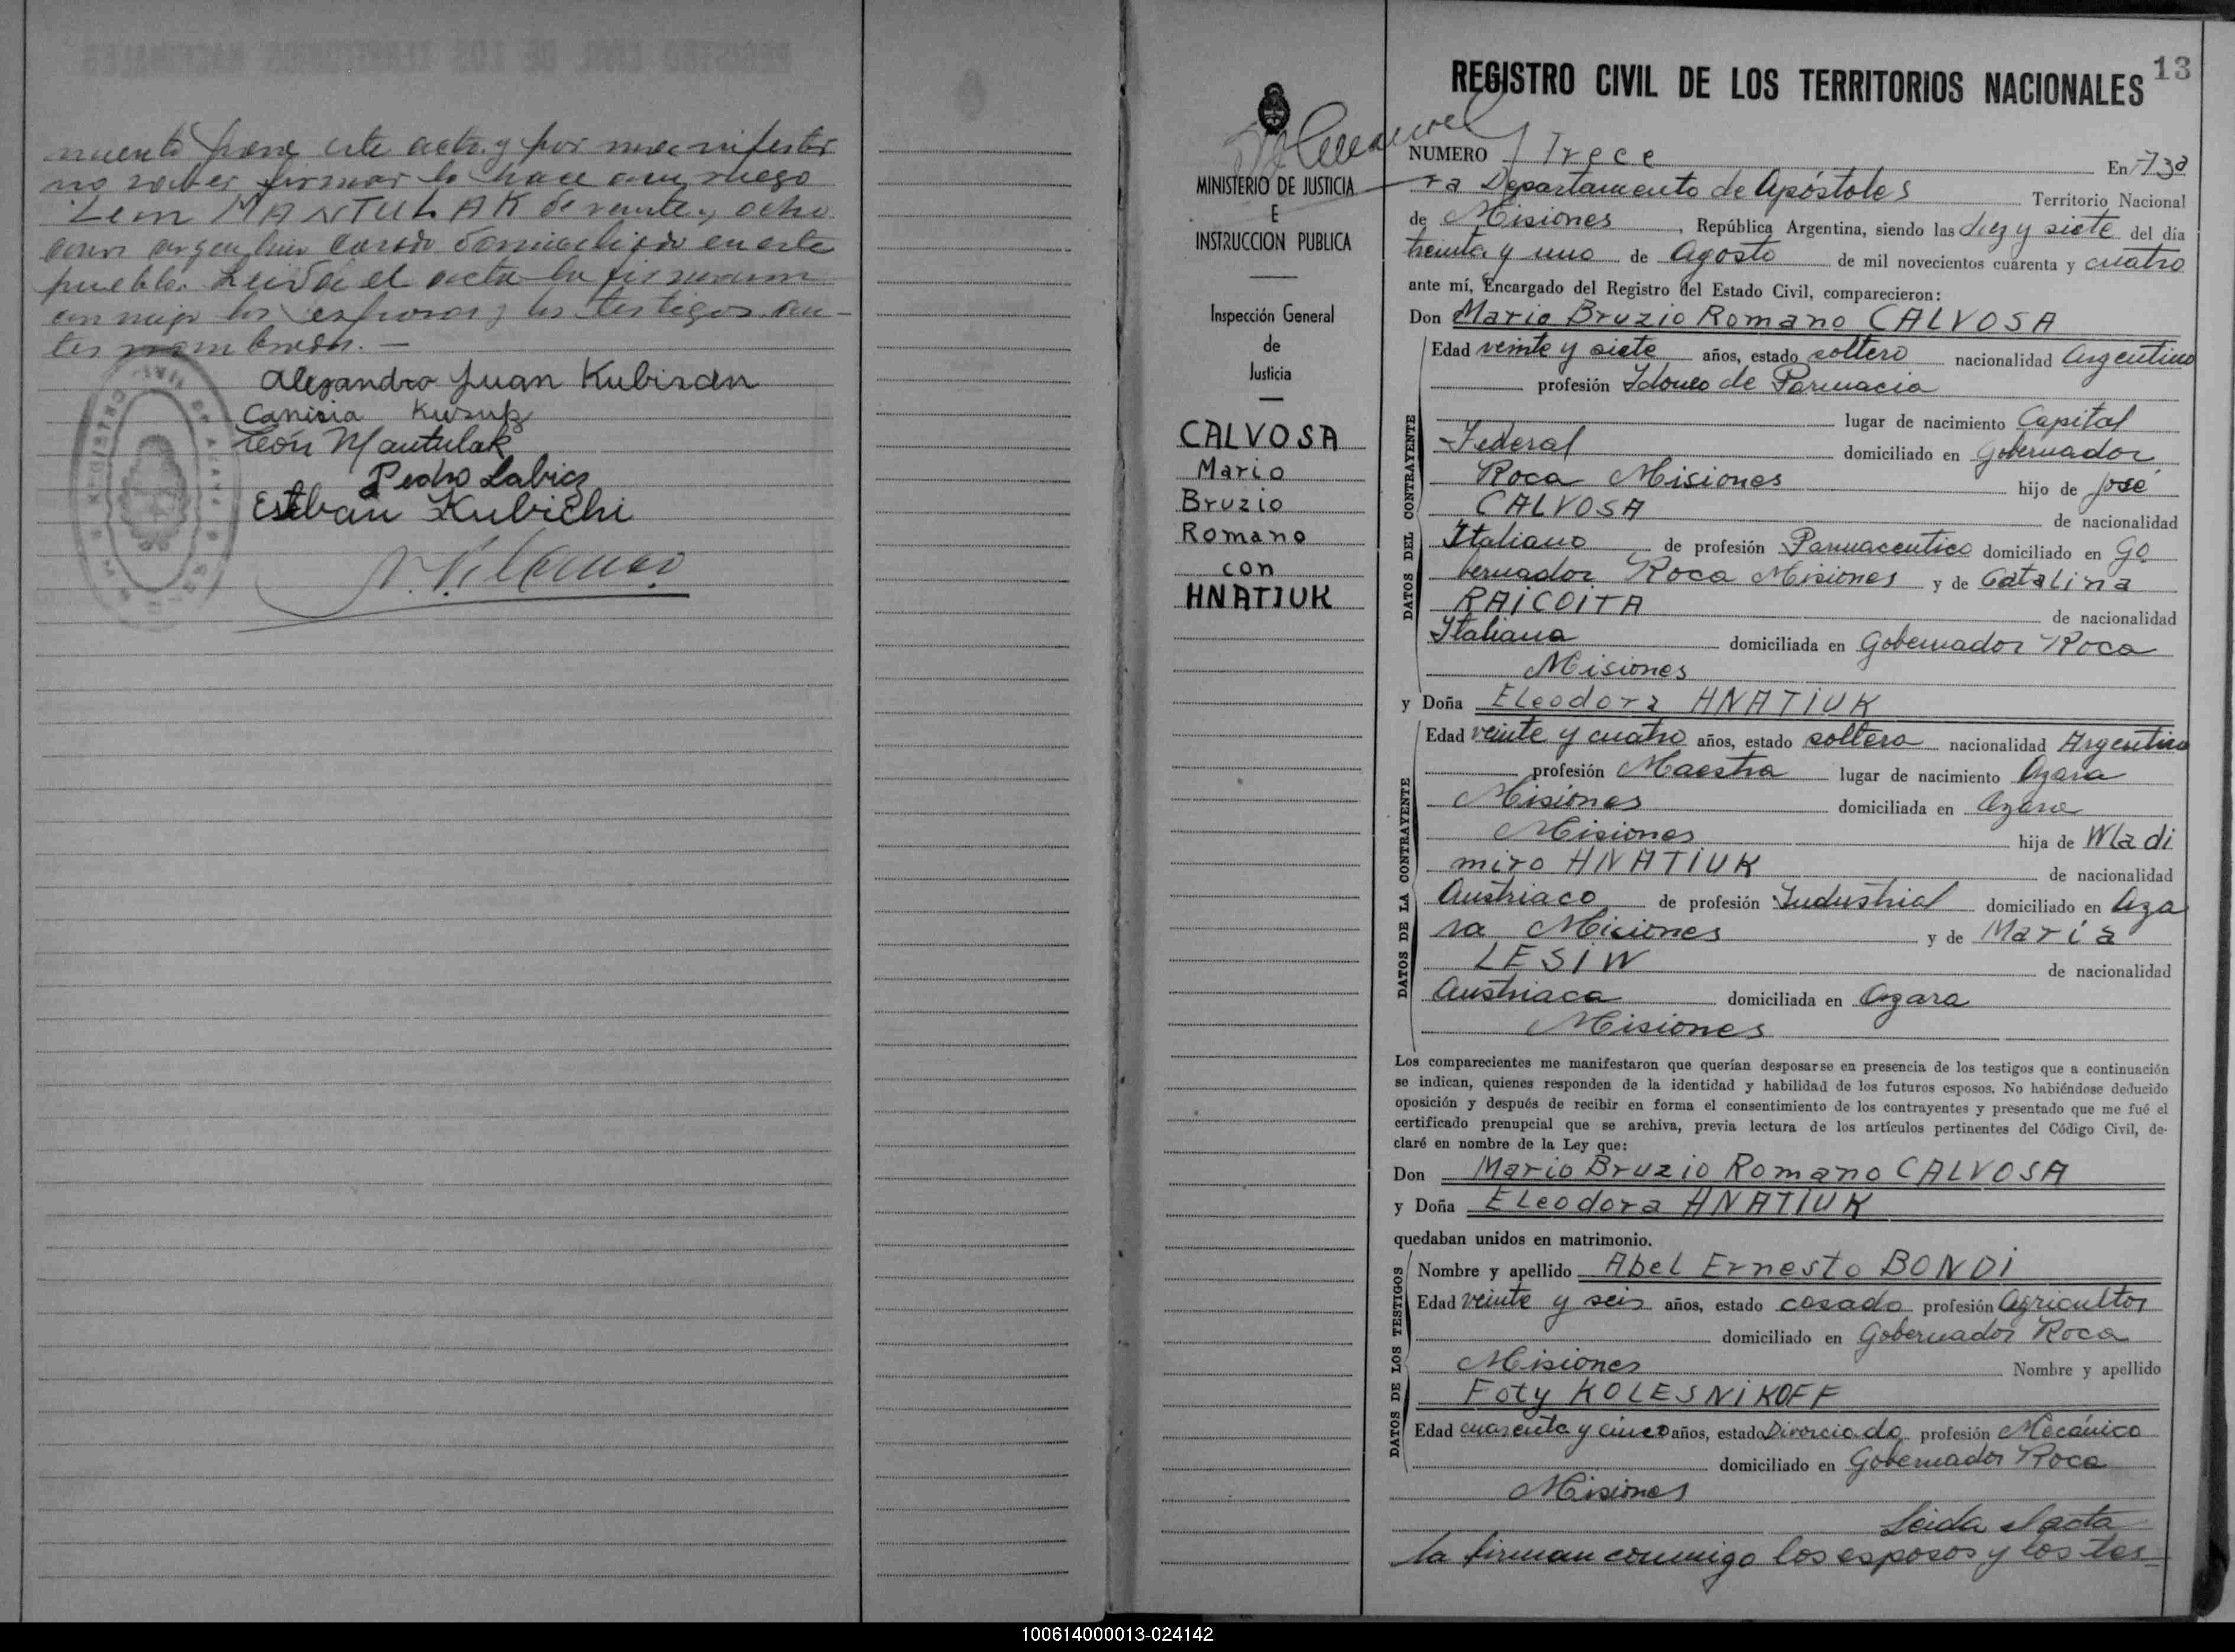 mento para este acto y por manifestar
no saber firmar lo hace a su ruego
León MANTULAK de veinte y ocho
años argentino casado domiciliado en este
pueblo. Leida el acta la firmaron
conmigo los esposos y los testigos an-
tes nombrados. —
Alejandro Juan Kubiszen
Canisia
León Mantulak
Pedro Labies
Esteban Kubichi
13
REGISTRO CIVIL DE LOS TERRITORIOS NACIONALES
MINISTERIO DE JUSTICIA
E
INSTRUCCION PUBLICA
Inspección General
de
Justicia
CALVOSA
Mario
Bruzio
Romano
con
HNATIUK
NUMERO Trece En Aza
ra Departamento de Apóstoles Territorio Nacional
de Misiones, República Argentina, siendo las diez y siete del día
treinta y uno de Agosto de mil novecientos cuarenta y cuatro
ante mí, Encargado del Registro del Estado Civil, comparecieron:
Don Mario Bruzio Romano CALVOSA
Edad veinte y siete años, estado soltero nacionalidad Argentino
profesión Idoneo de Farmacia
lugar de nacimiento Capital
Federal domiciliado en Gobernador
Roca Misiones hijo de José
CALVOSA de nacionalidad
Italiano de profesión Farmaceutico domiciliado en Go
bernador Roca Misiones y de Catalina
RAICOITA de nacionalidad
Italiana domiciliada en Gobernador Roca
Misiones
DATOS DEL CONTRAYENTE
y Doña Eleodora HNATIUK
Edad veinte y cuatro años, estado soltera nacionalidad Argentina
profesión Maestra lugar de nacimiento Azara
Misiones domiciliada en Azara
Misiones hija de Wladi
miro HNATIUK de nacionalidad
Austriaco de profesión Industrial domiciliado en Aza
ra Misiones y de María
LESIW de nacionalidad
Austriaca domiciliada en Azara
Misiones
DATOS DE LA CONTRAYENTE
Los comparecientes me manifestaron que querían desposarse en presencia de los testigos que a continuación
se indican, quienes responden de la identidad y habilidad de los futuros esposos. No habiéndose deducido
oposición y después de recibir en forma el consentimiento de los contrayentes y presentado que me fué el
certificado prenupcial que se archiva, previa lectura de los artículos pertinentes del Código Civil, de-
claré en nombre de la Ley que:
Don Mario Bruzio Romano CALVOSA
y Doña Eleodora HNATIUK
quedaban unidos en matrimonio.
Nombre y apellido Abel Ernesto BONDI
Edad veinte y seis años, estado casado profesión Agricultor
domiciliado en Gobernador Roca
Misiones Nombre y apellido
Foty KOLESNIKOFF
Edad cuarenta y cinco años, estado Divorciado profesión Mecánico
domiciliado en Gobernador Roca
Misiones
DATOS DE LOS TESTIGOS
Leida el acta
la firman conmigo los esposos y los tes-
100614000013-024142